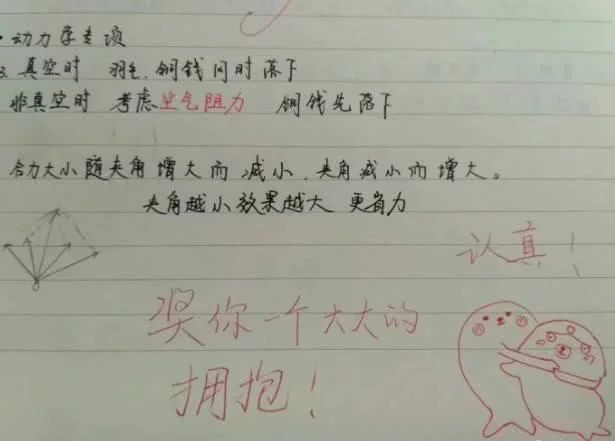 ·动力学专项
3. 真空时 羽毛,铜钱同时落下
非真空时 考虑空气阻力 铜钱先落下
合力大小随夹角增大而减小,夹角减小而增大。
夹角越小效果越大 更省力
认真!
奖你一个大大的
拥抱!